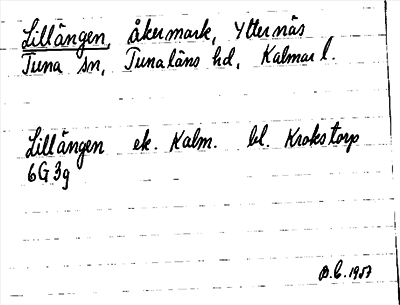 Lillängen, åkermark, Ytternäs
Tuna sn, Tunaläns hd, Kalmar l.
Lillängen ek. Kalm. bl. Krokstorp
6G3g
B.C. 1957